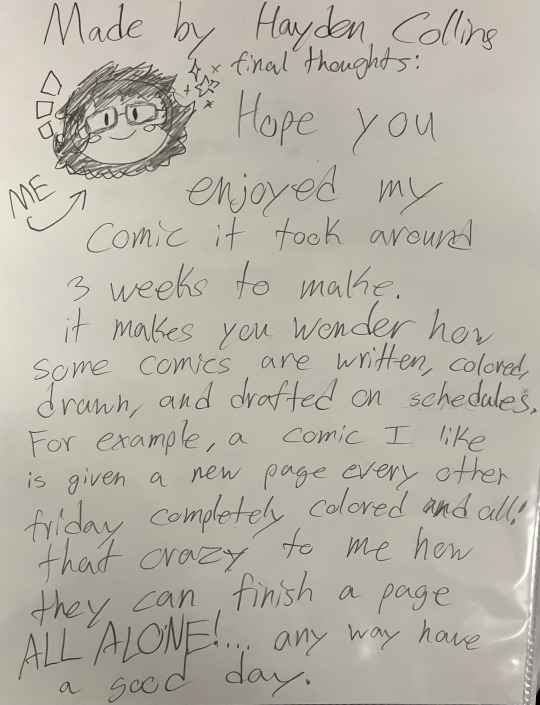 Made by Hayden Colling
final thoughts:
Hope you
enjoyed my
ME
Comic it took around
3 weeks to make.
it makes you wonder how
some comics are written, colored,
drawn, and drafted on schedules.
For example, a comic I like
is given a new page every other
friday completely colored and all!
that crazy to me how
they can finish a page
ALL ALONE!... any way have
a good day.